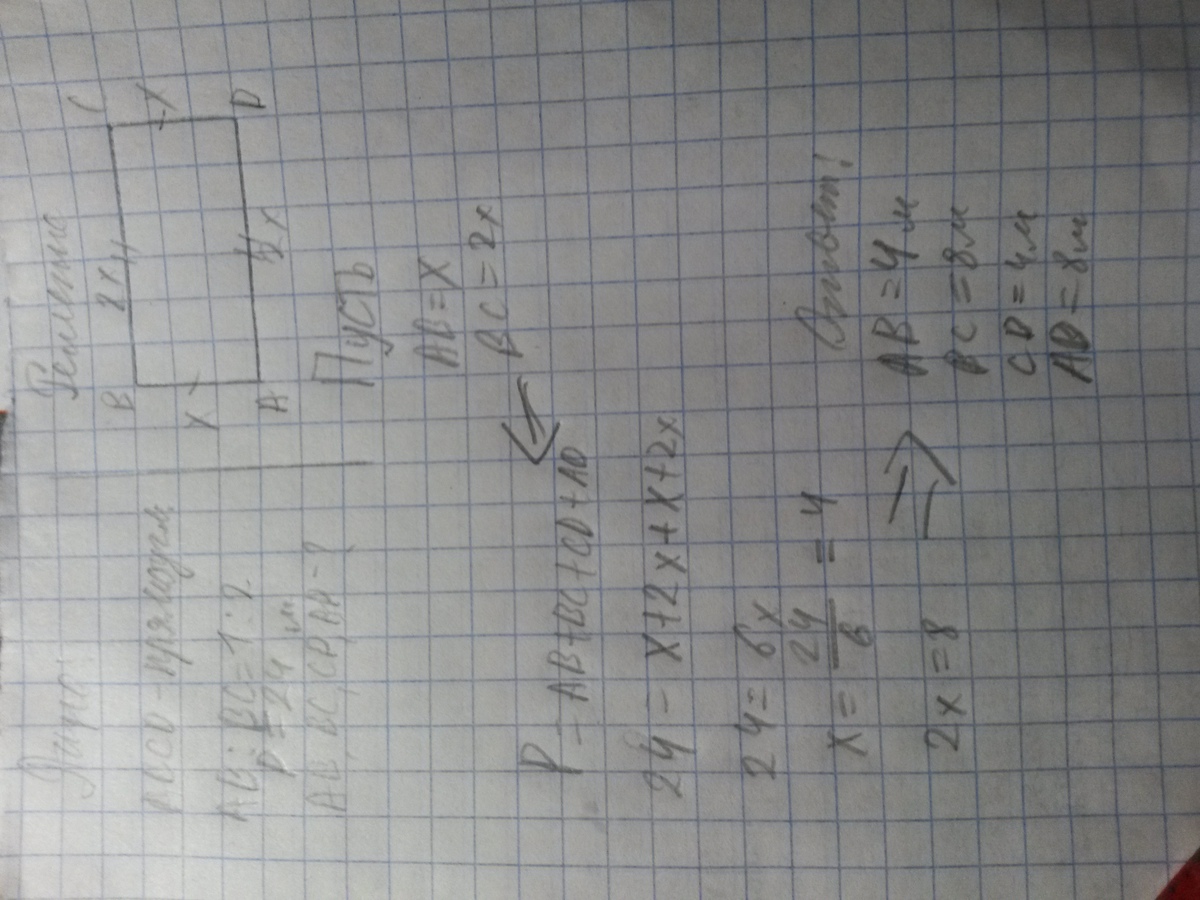 Дано:
ABCD - прямоугол
AB:BC=1:2
P=24 м
AB, BC, CD, AD - ?
Решение
B
2x
C
x
x
A
2x
D
Пусть
AB=x
BC=2x
P=AB+BC+CD+AD
24=x+2x+x+2x
24=6x
x=24/6=4
2x=8
Ответ:
AB=4м
BC=8м
CD=4м
AD=8м